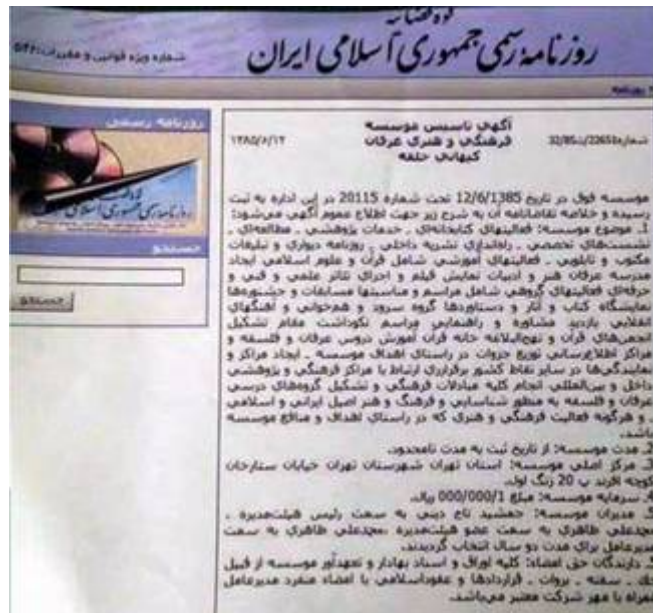 قوه قضائیه
روزنامه رسمی جمهوری اسلامی ایران
شماره ویژه قوانین و مقررات:
روزنامه
روزنامه رسمی
جستجو
جستجو
آگهی تاسیس موسسه
فرهنگی و هنری عرفان
کیهانی حلقه
۱۳۸۵/۶/۱۳
موسسه فوق در تاریخ 12/6/1385 تحت شماره 20115 در این اداره به ثبت
رسیده و خلاصه تقاضانامه آن به شرح زیر جهت اطلاع عموم آگهی میشود:
1ـ موضوع موسسه: فعالیتهای کتابخانهای ـ خدمات پژوهشی ـ مطالعهای ـ
نشستهای تخصصی ـ راهاندازی نشریه داخلی ـ روزنامه دیواری و تبلیغات
مکتوب و تابلویی ـ فعالیتهای آموزشی شامل قرآن و علوم اسلامی ایجاد
مدرسه عرفان هنر و ادبیات نمایش فیلم و اجرای تئاتر علمی و فنی و
حرفهای فعالیتهای گروهی شامل مراسم و مناسبتها مسابقات و جشنوارهها
نمایشگاه کتاب و آثار و دستاوردها گروه سرود و همخوانی و آهنگهای
انقلابی بازدید مشاوره و راهنمایی مراسم نکوداشت مقام تشکیل
انجمنهای قرآن و نهجالبلاغه خانه قرآن آموزش دروس عرفان و فلسفه و
مراکز اطلاعرسانی توزیع جزوات در راستای اهداف موسسه ـ ایجاد مراکز و
نمایندگیها در سایر نقاط کشور برقراری ارتباط با مراکز فرهنگی و پژوهشی
داخل و بینالمللی انجام کلیه مبادلات فرهنگی و تشکیل گروههای درسی
عرفان و فلسفه به منظور شناسایی و فرهنگ و هنر اصیل ایرانی و اسلامی
و هرگونه فعالیت فرهنگی و هنری که در راستای اهداف و منافع موسسه
باشد.
2ـ مدت موسسه: از تاریخ ثبت به مدت نامحدود.
3ـ مرکز اصلی موسسه: استان تهران شهرستان تهران خیابان ستارخان
کوچه افرند پ 20 زنگ اول.
4ـ سرمایه موسسه: مبلغ 000/000/1 ریال.
5ـ مدیران موسسه: جمشید تاج دینی به سمت رئیس هیئتمدیره ـ
محمدعلی طاهری به سمت عضو هیئتمدیره ـ محمدعلی طاهری به سمت
مدیرعامل برای مدت دو سال انتخاب گردیدند.
دارندگان حق امضاء: کلیه اوراق و اسناد بهادار و تعهدآور موسسه از قبیل
چک ـ سفته ـ بروات ـ قراردادها و عقوداسلامی با امضاء منفرد مدیرعامل
همراه با مهر شرکت معتبر میباشد.